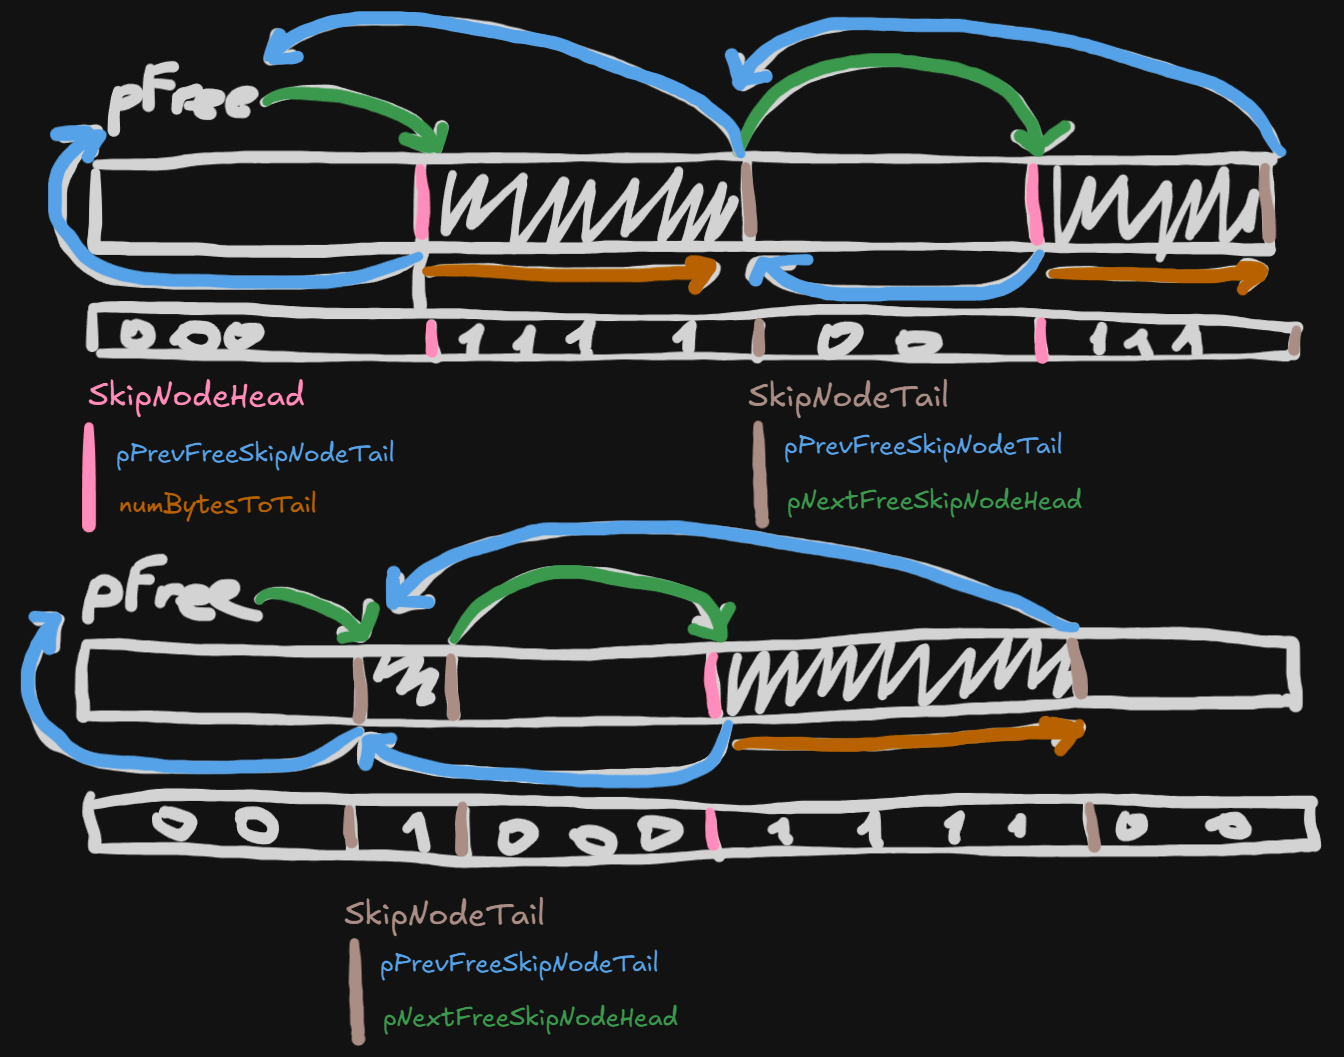 pFree
000 1111 00 111
SkipNodeHead
pPrevFreeSkipNodeTail
numBytesToTail
SkipNodeTail
pPrevFreeSkipNodeTail
pNextFreeSkipNodeHead
pFree
00 1 000 1111 00
SkipNodeTail
pPrevFreeSkipNodeTail
pNextFreeSkipNodeHead